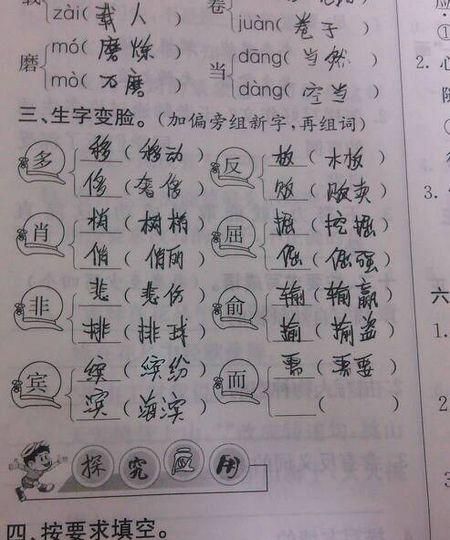 zài(载人) 卷
juàn(卷子)
磨 mó(磨炼) 当 dāng(当然)
mò(石磨) dàng(空当)
三、生字变脸。(加偏旁组新字,再组词)
多 移(移动) 反 板(木板)
侈(奢侈) 贩(贩卖)
肖 梢(树梢) 屈 掘(挖掘)
俏(俏丽) 倔(倔强)
非 悲(悲伤) 俞 输(输赢)
排(排球) 揄(揄盗)
宾 缤(缤纷) 而 需(需要)
滨(海滨) ( )
探究应用
四、按要求填空。
①
2.
3.
六
1.
2
3